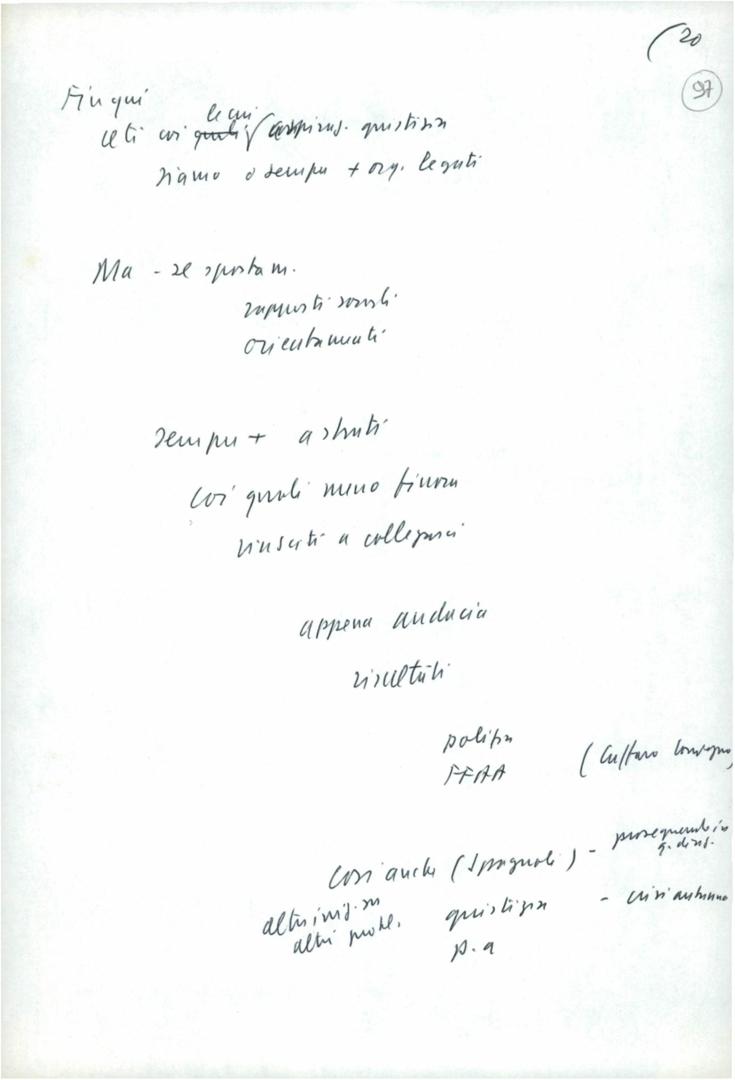 (20
97
Fin qui
le cui
ceti coi quali aspiraz. giustizia
siamo o sempre + org. legati
Ma - se spostam.
rapporti sociali
orientamenti
sempre + astratti
coi quali meno finora
riusciti a collegarci
appena audacia
risultati
polizia
FFAA (Cuffaro convegno)
Così anche (Spagnoli) - proseguendo in
q. direz.
altri iniz. su giustizia - crisi autunno
altri probl.
p. a